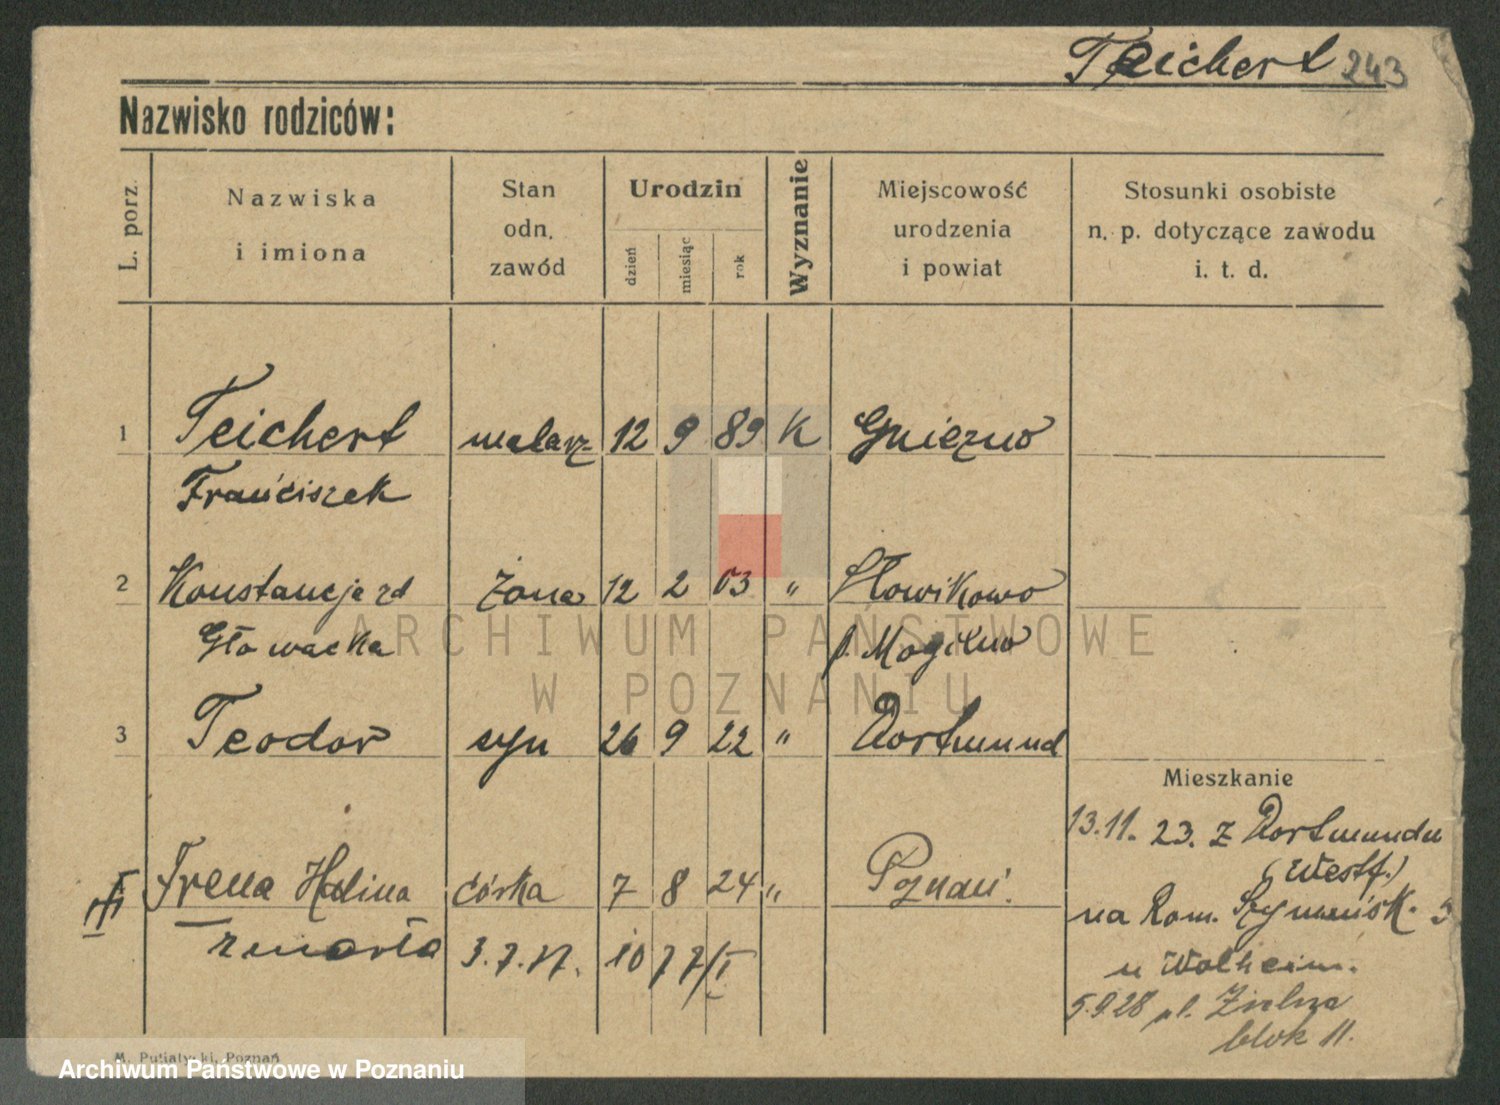 Teichert 243
Nazwisko rodziców:
L. porz.
Nazwiska
i imiona
Stan
odn.
zawód
Urodzin
dzień
miesiąc
rok
Wyznanie
Miejscowość
urodzenia
i powiat
Stosunki osobiste
n. p. dotyczące zawodu
i. t. d.
1 Teichert malarz 12 9 89 K Gniezno
Franciszek
2 Konstancja zd żona 12 2 03 " Słowikowo
Głowacka p. Mogilno
ARCHIWUM PAŃSTWOWE
W POZNANIU
3 Teodor syn 26 9 22 " Dortmund
Mieszkanie
13.11. 23. z Dortmundu
(Westf.)
Irena Halina córka 7 8 24 " Poznań.
na Rom. Szymańsk. 3
zmarła 3.7.27. 10 77/I
u Wolheim.
5.9.28 pl. Zielna
blok 11.
M. Putiatycki, Poznań
Archiwum Państwowe w Poznaniu